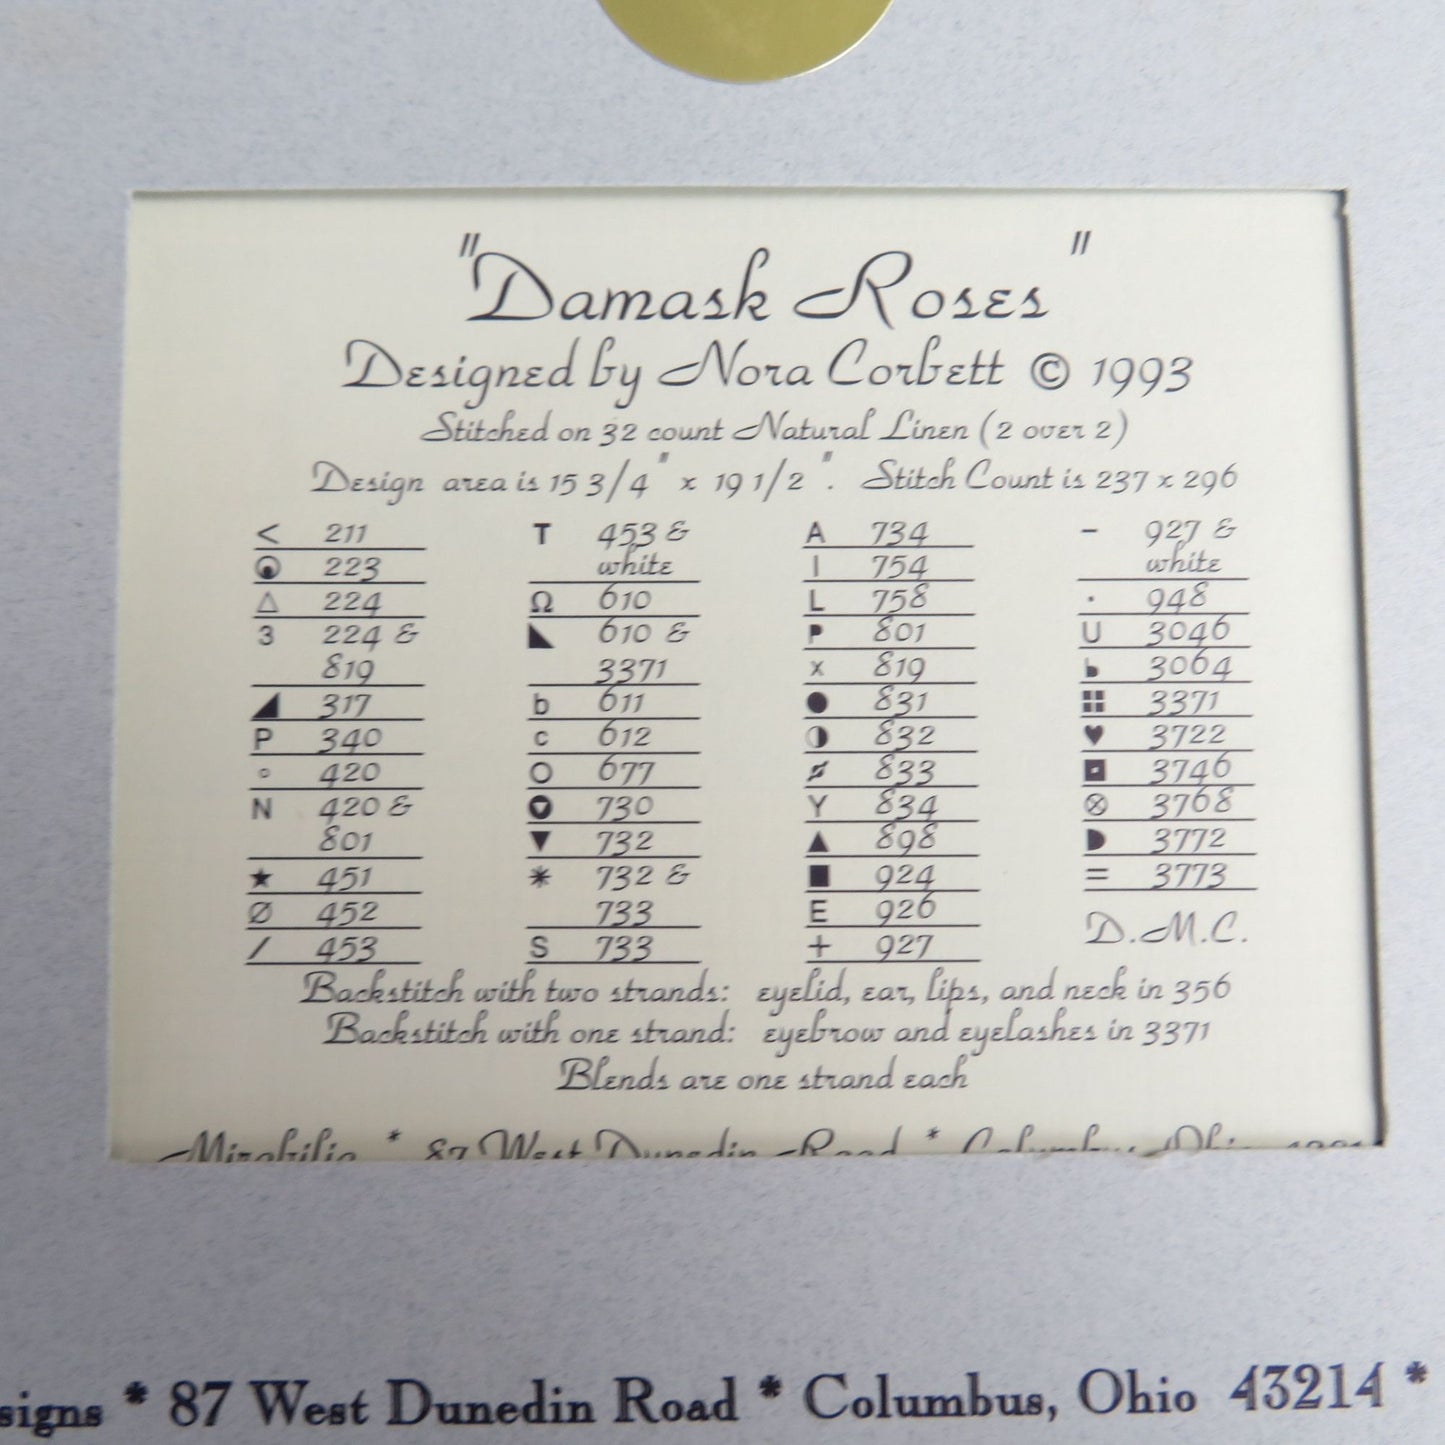 "Damask Roses"
Designed by Nora Corbett © 1993
Stitched on 32 count Natural Linen (2 over 2)
Design area is 15 3/4" x 19 1/2". Stitch Count is 237 x 296
< 211
223
△ 224
3 224 &
819
◢ 317
P 340
○ 420
N 420 &
801
★ 451
Ø 452
/ 453
T 453 &
white
Ω 610
◣ 610 &
3371
b 611
c 612
O 677
730
▼ 732
* 732 &
733
S 733
A 734
I 754
L 758
P 801
x 819
● 831
◑ 832
833
Y 834
▲ 898
■ 924
E 926
+ 927
- 927 &
white
· 948
U 3046
3064
3371
♥ 3722
3746
⊗ 3768
◗ 3772
= 3773
D.M.C.
Backstitch with two strands: eyelid, ear, lips, and neck in 356
Backstitch with one strand: eyebrow and eyelashes in 3371
Blends are one strand each
Mirabilia * 87 West Dunedin Road * Columbus, Ohio
signs * 87 West Dunedin Road * Columbus, Ohio 43214 *